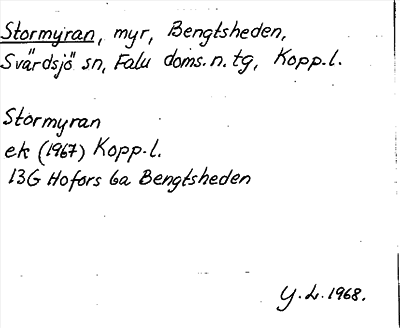 Stormyran, myr, Bengtsheden,
Svärdsjö sn, Falu doms.n.tg, Kopp.l.
Stormyran
ek (1967) Kopp.l.
13G Hofors 6a Bengtsheden
Y.L. 1968.